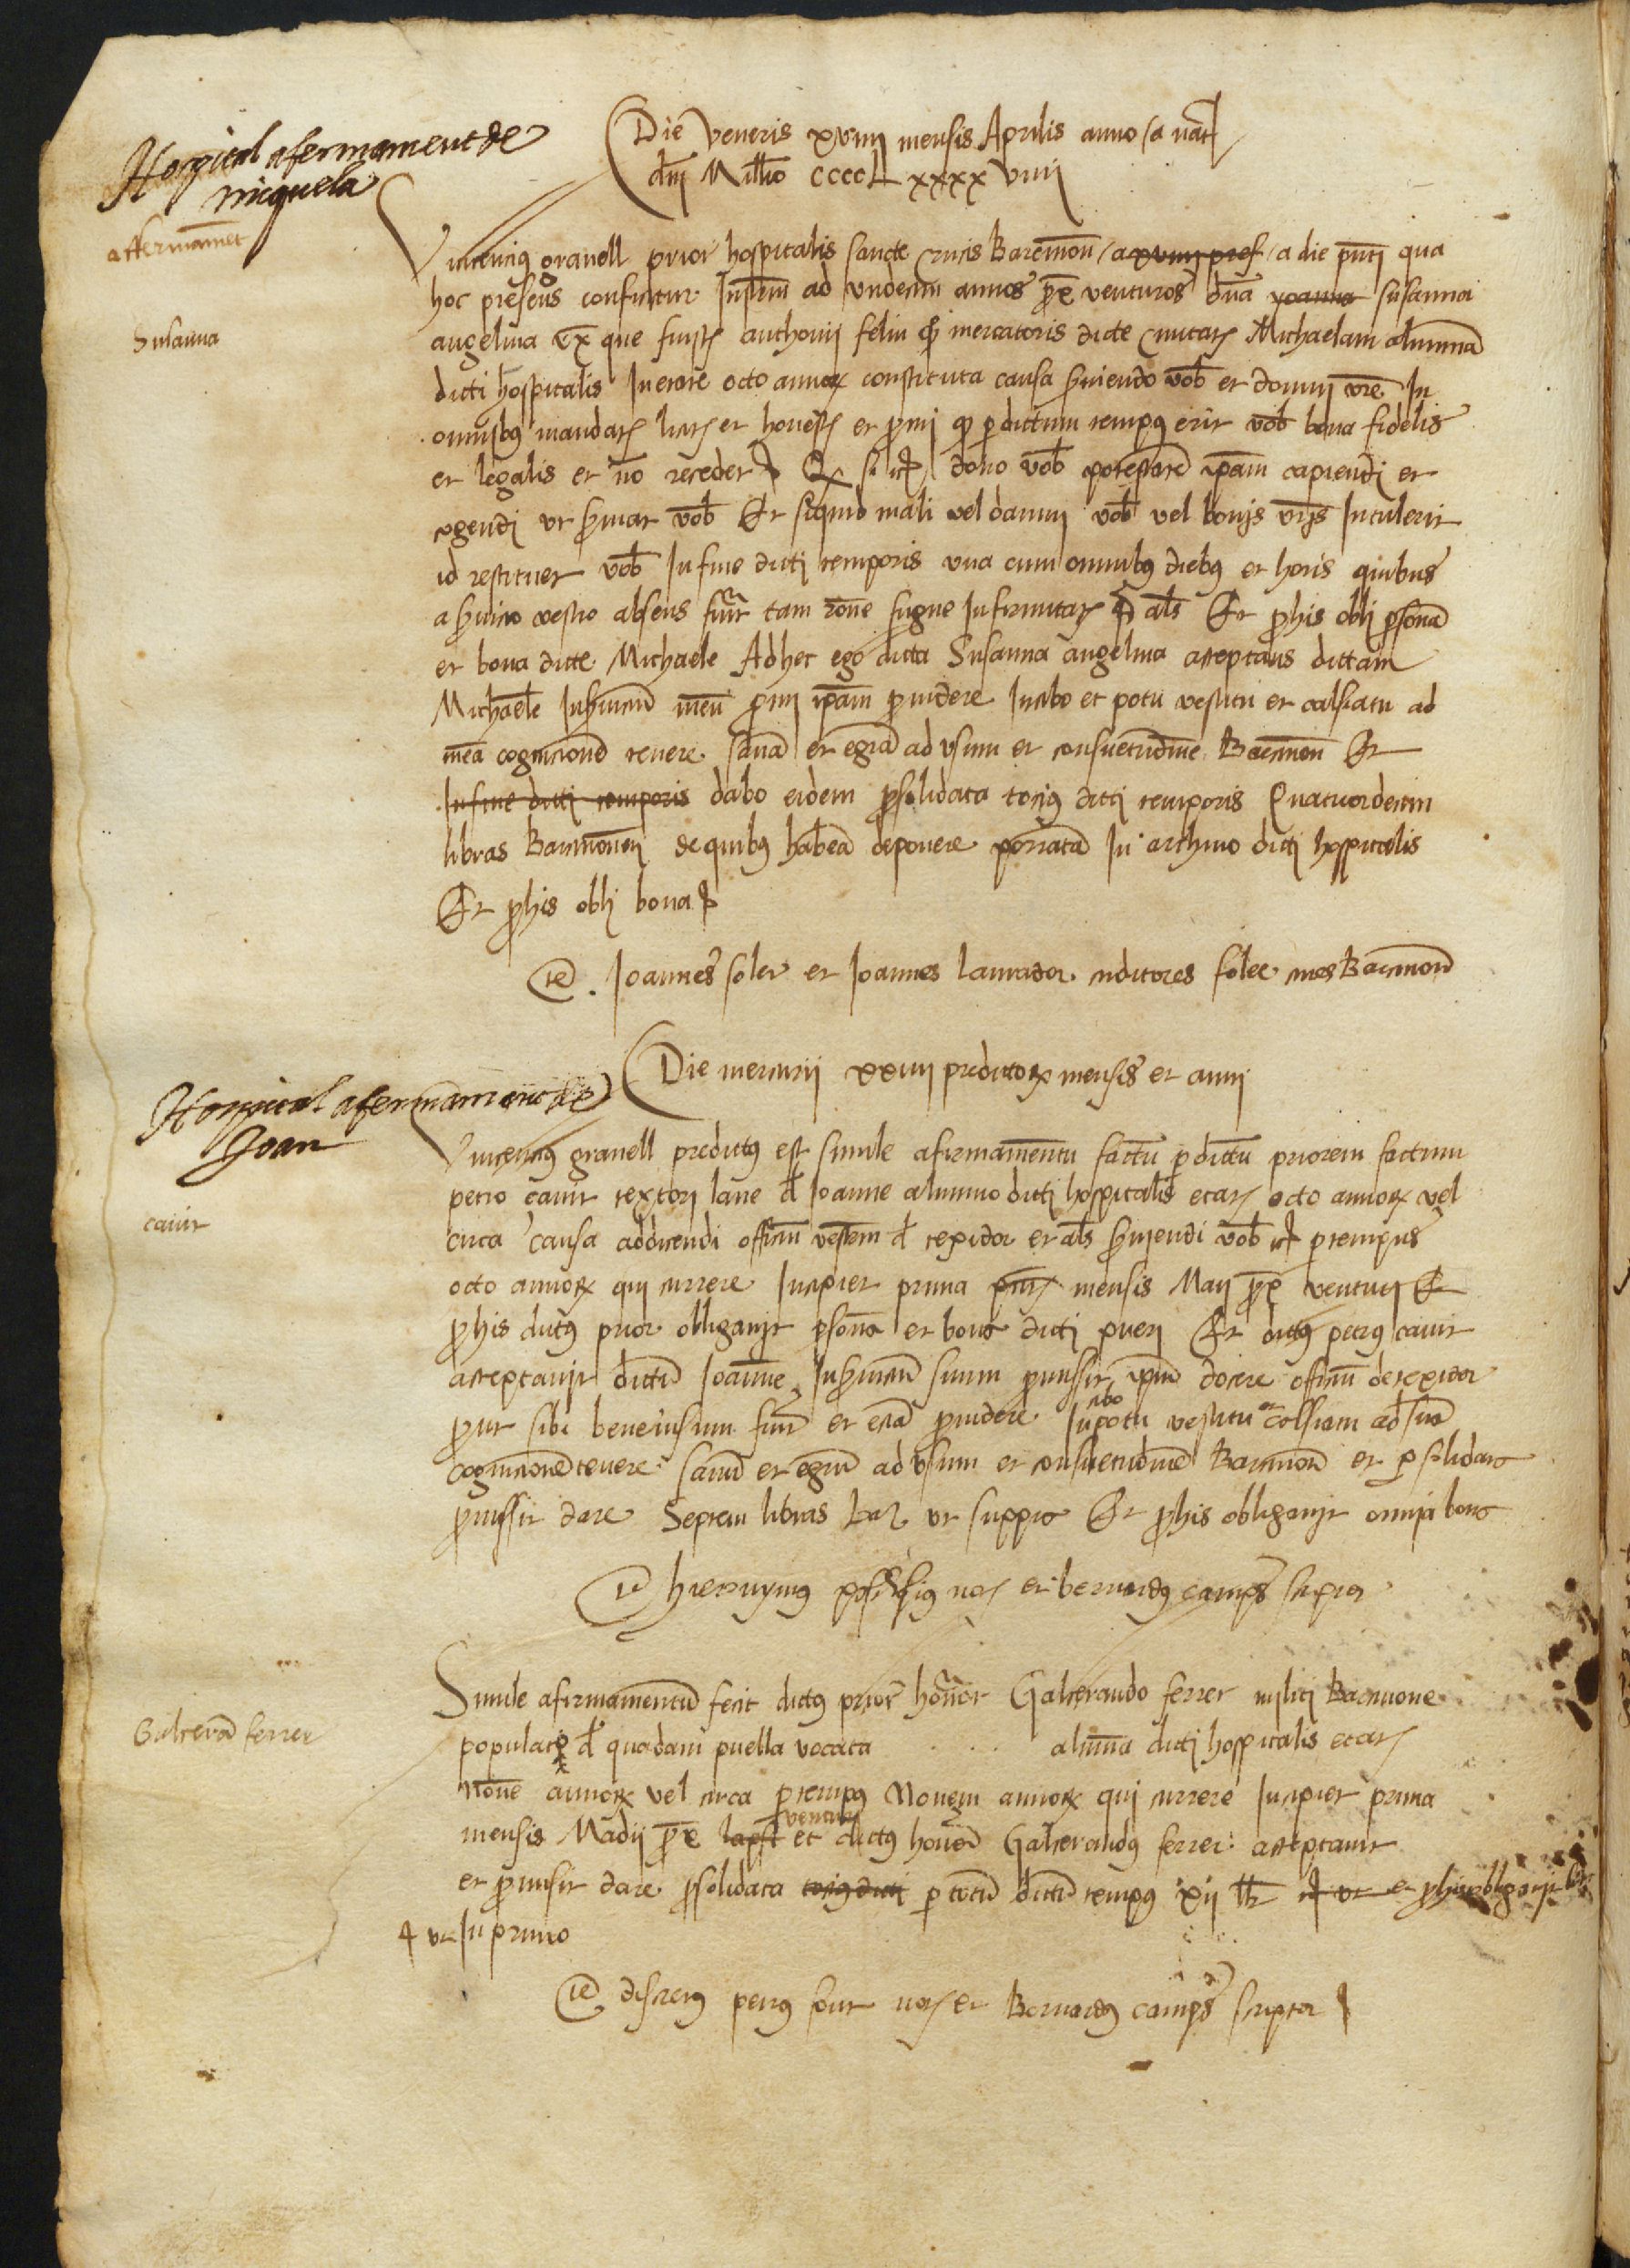 Die Veneris xviiii mensis Aprilis anno a nat
dnj Millio ccccL xxxx viiij
Hospital afermament de
miquela
affermamet
Vincencius granell prior hospitalis sancte crucis Barcinon a xviiij pres a die pnti qua
hoc presens conficitur Instrm ad undecim annos prox venturos dna yoanna susanna
Susanna
angelina ux que fuistis anthonij feliu quondam mercatoris dicte civitatis Michaelam alumnam
dicti hospitalis In etate octo annorum constituta causa serviendo vob et domuj vre In
omnibus mandatis licitis et honestis et promi quod per dictum tempus erit vob bona fidelis
et legalis et no recedet Et si dono vob potestate ipam capiendi et
cogendi ut serviat vob Et si quid mali vel dannj vob vel bonis vris Intulerit
id restituet vob In fine dicti temporis una cum omnibus diebus et horis quibus
a servicio vestro absens fuerit tam rone fugue Infirmitatis als Et pro his obli persona
et bona dicte Michaele Ad hec ego dicta Susanna angelina acceptans dictam
Michaele In servicium meu promi ipam providere In cibo et potu vestitu et calsiatu ad
mea cognicione tenere sana et egra ad usum et consuetudine Barcinon Et
In fine dicti temporis dabo eidem pro solidata tocius dicti temporis Quatuordecim
libras Barcinonen de quibus habea deponere portata In archivo dicti hospitalis
Et pro his obli bona
te Joannes soler et Joannes laurador cives Barcinon
Die mercurij xxiiij predictorum mensis et annj
Hospital afermament de
Joan
Vincencius granell predictus est simile afirmamentu factu per dictu priorem factum
petro cavit textori lane de Joanne alumno dicti hospitalis etatis octo annorum vel
cavit
circa causa addicendi officiu vestrm de texidor et als serviendi vob per tempus
octo annorum qui currere Incipiet prima mensis Maij prox venturi Et
pro his dictus prior obligavit persona et bona dicti pueri Et dictus petrus cavit
acceptavit dictu Joanne In serviciu suum promissit ipm docere officiu de texidor
prout sibi bene visum fuerit et ecia providere In cibo potu vestitu et calsiatu ad sua
cognicione tenere sanu et egru ad usum et consuetudine Barcinon et pro solidata
promissit dare Septem libras bar ut supra Et pro his obligavit omnia bona
te hieronymus nots et bernardus camps scriptor
Simile afirmamentu fecit dictus prior honor Galcerando ferrer militi Barcinone
Galcera ferrer
populato de quadam puella vocata . . . alumna dicti hospitalis etatis
nove annorum vel circa per tempus Novem annorum qui currere Incipiet prima
mensis Madij prox lapst venturi et dictus honor Galcerandus ferrer acceptavit
et promisit dare pro solidata tocius dicti per totu dictu tempus xij ll ut et pro his obligavit
ut In primo
te discretus petrus nots et Bernardus camps scriptor